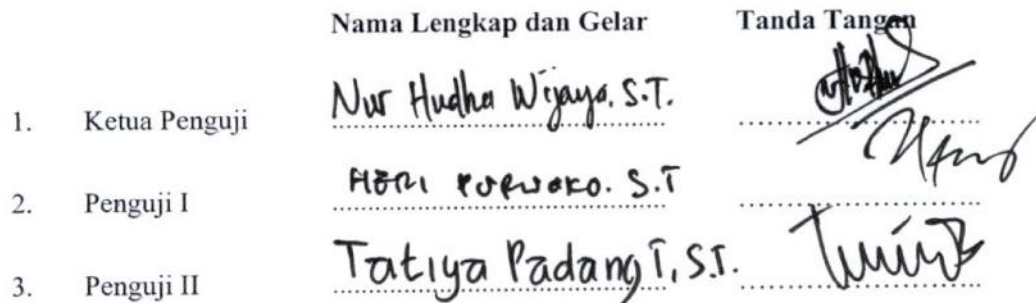 Nama Lengkap dan Gelar Tanda Tangan
1. Ketua Penguji Nur Hudha Wijaya, S.T.
2. Penguji I HERI PURWOKO. S.T
3. Penguji II Tatiya Padang T, S.T.